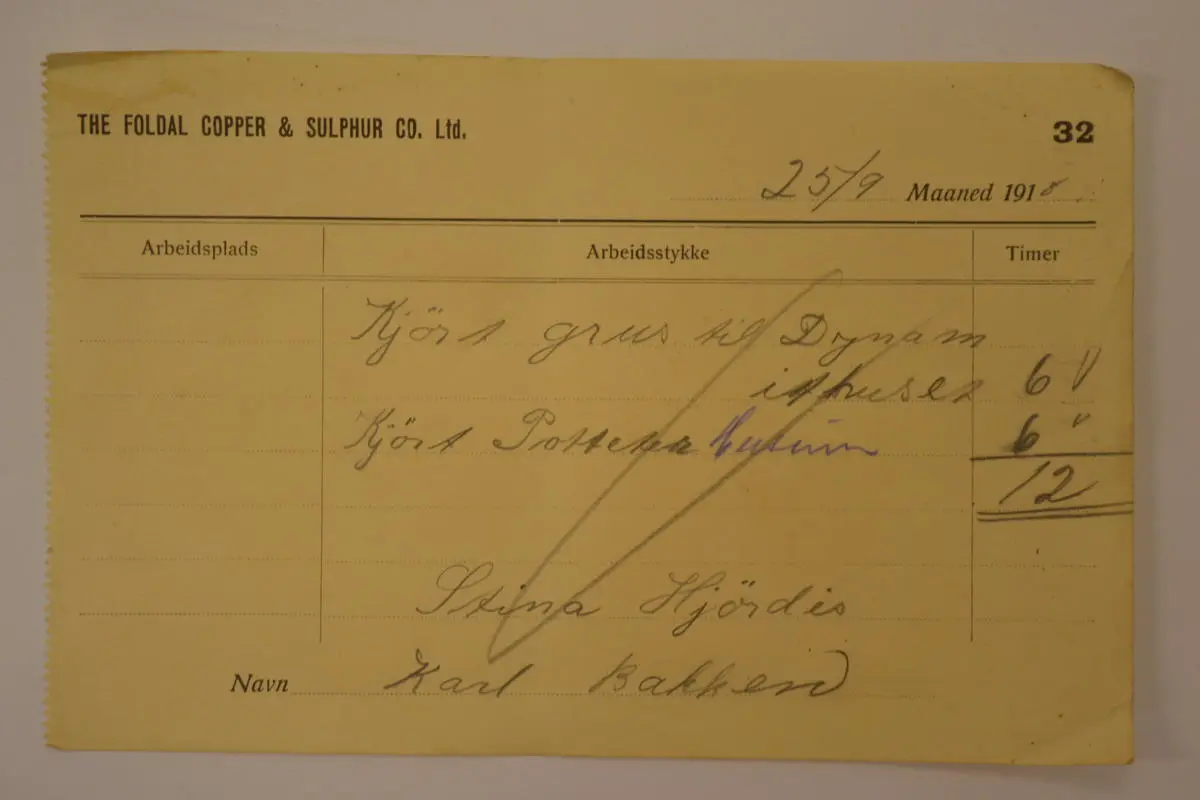 THE FOLDAL COPPER & SULPHUR CO. Ltd. 32
25/9 Maaned 1918
Arbeidsplads Arbeidsstykke Timer
Kjört grus til Dynam
ithuset 6 "
Kjört Potteter 6 "
12
Stina Hjördis
Navn Karl Bakken